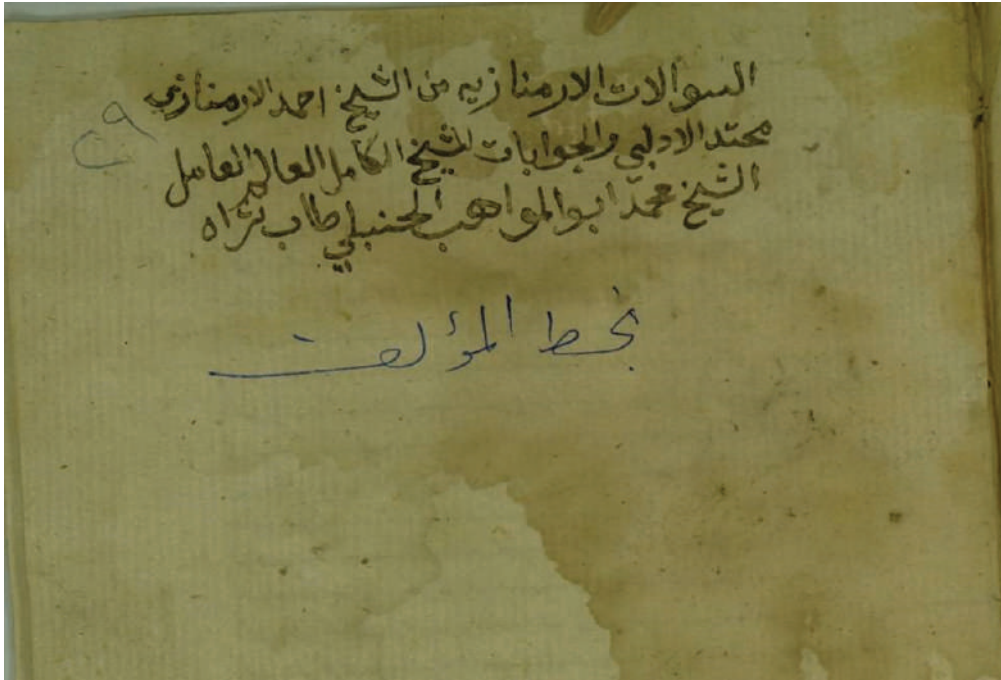 السوالات الارمنازيه من الشيخ احمد الارمنازي
محتد الادلبي والجوابات للشيخ الكامل العالم العامل
الشيخ محمد ابو المواهب الحنبلي طاب ثراه
بخط المؤلف